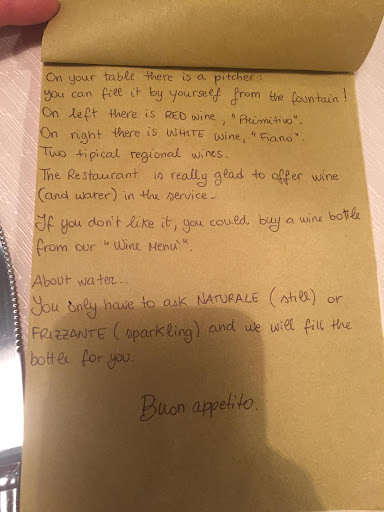 On your table there is a pitcher:
you can fill it by yourself from the fountain!
On left there is RED wine, "Primitivo".
On right there is WHITE wine, "Fiano".
Two tipical regional wines.
The Restaurant is really glad to offer wine
(and water) in the service.
If you don't like it, you could buy a wine bottle
from our "Wine Menù".
About water...
You only have to ask NATURALE (still) or
FRIZZANTE (sparkling) and we will fill the
bottle for you.
Buon appetito.